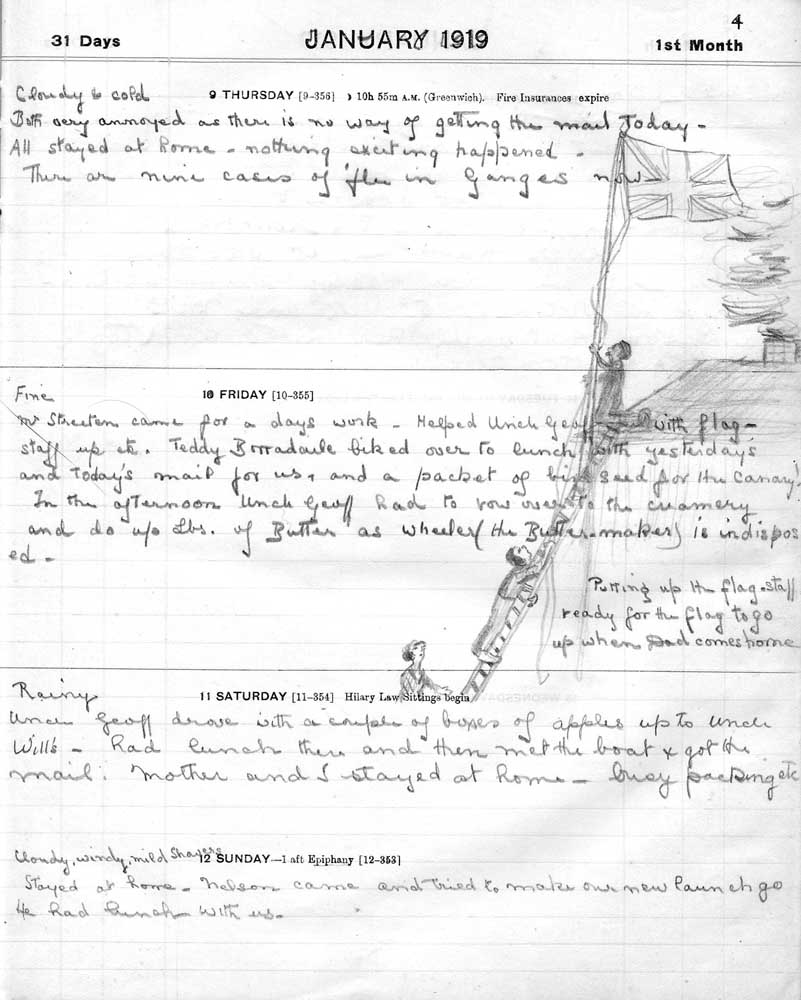 4
31 Days JANUARY 1919 1st Month
Cloudy & cold 9 THURSDAY [9-356] ☽ 10h 55m A.M. (Greenwich). Fire Insurances expire
Both very annoyed as there is no way of getting the mail Today -
All stayed at home - nothing exciting happened -
There are nine cases of 'flu in Ganges now -
Fine 10 FRIDAY [10-355]
Mr Streeten came for a days work - Helped Uncle Geoff with flag-
staff up etc. Teddy Borradaile biked over to lunch with yesterday's
and Today's mail for us, and a packet of bird seed for the Canary!
In the afternoon Uncle Geoff had to row over to the creamery
and do up Lbs. of Butter as Wheeler (the Butter-maker) is indispos
ed -
Putting up the flag-staff
ready for the flag to go
up when Dad comes home
Rainy 11 SATURDAY [11-354] Hilary Law Sittings begin
Uncle Geoff drove with a couple of boxes of apples up to Uncle
Will's - had lunch there and then met the boat & got the
mail. Mother and I stayed at home - busy packing etc
Cloudy, windy, mild Showers 12 SUNDAY—1 aft Epiphany [12-353]
Stayed at home - Nelson came and tried to make our new launch go
He had lunch with us -